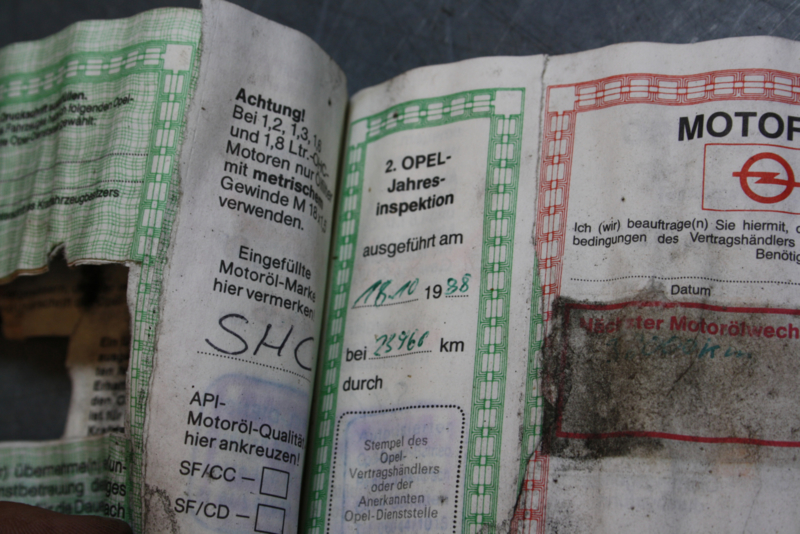 folgenden Opel-
Achtung!
Bei 1,2, 1,3, 1,6
und 1,8 Ltr.-OHC-
Motoren nur Ölfilter
mit metrischem
Gewinde M 18 x 1,5
verwenden.
Eingefüllte
Motoröl-Marke
hier vermerken
SHC
API-
Motoröl-Qualität
hier ankreuzen!
SF/CC –
SF/CD –
2. OPEL-
Jahres-
inspektion
ausgeführt am
18.10 1988
bei 23960 km
durch
Stempel des
Opel-
Vertragshändlers
oder der
Anerkannten
Opel-Dienststelle
MOTOR
Ich (wir) beauftrage(n) Sie hiermit,
bedingungen des Vertragshändlers
Benötig
Datum
Nächster Motorölwech
übernehme(n)